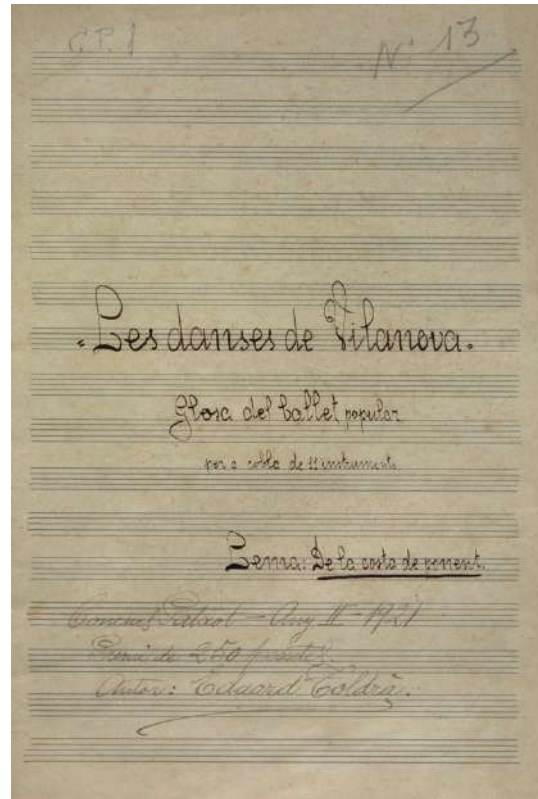 C.P. 1
Nº 13
"Les danses de Vilanova"
Glosa del ballet popular
per a cobla de 11 instruments
Lema: De la costa de ponent.
Concurs Patxot - Any II - 1921
Premi de 250 pessetes.
Autor: Eduard Toldrà.